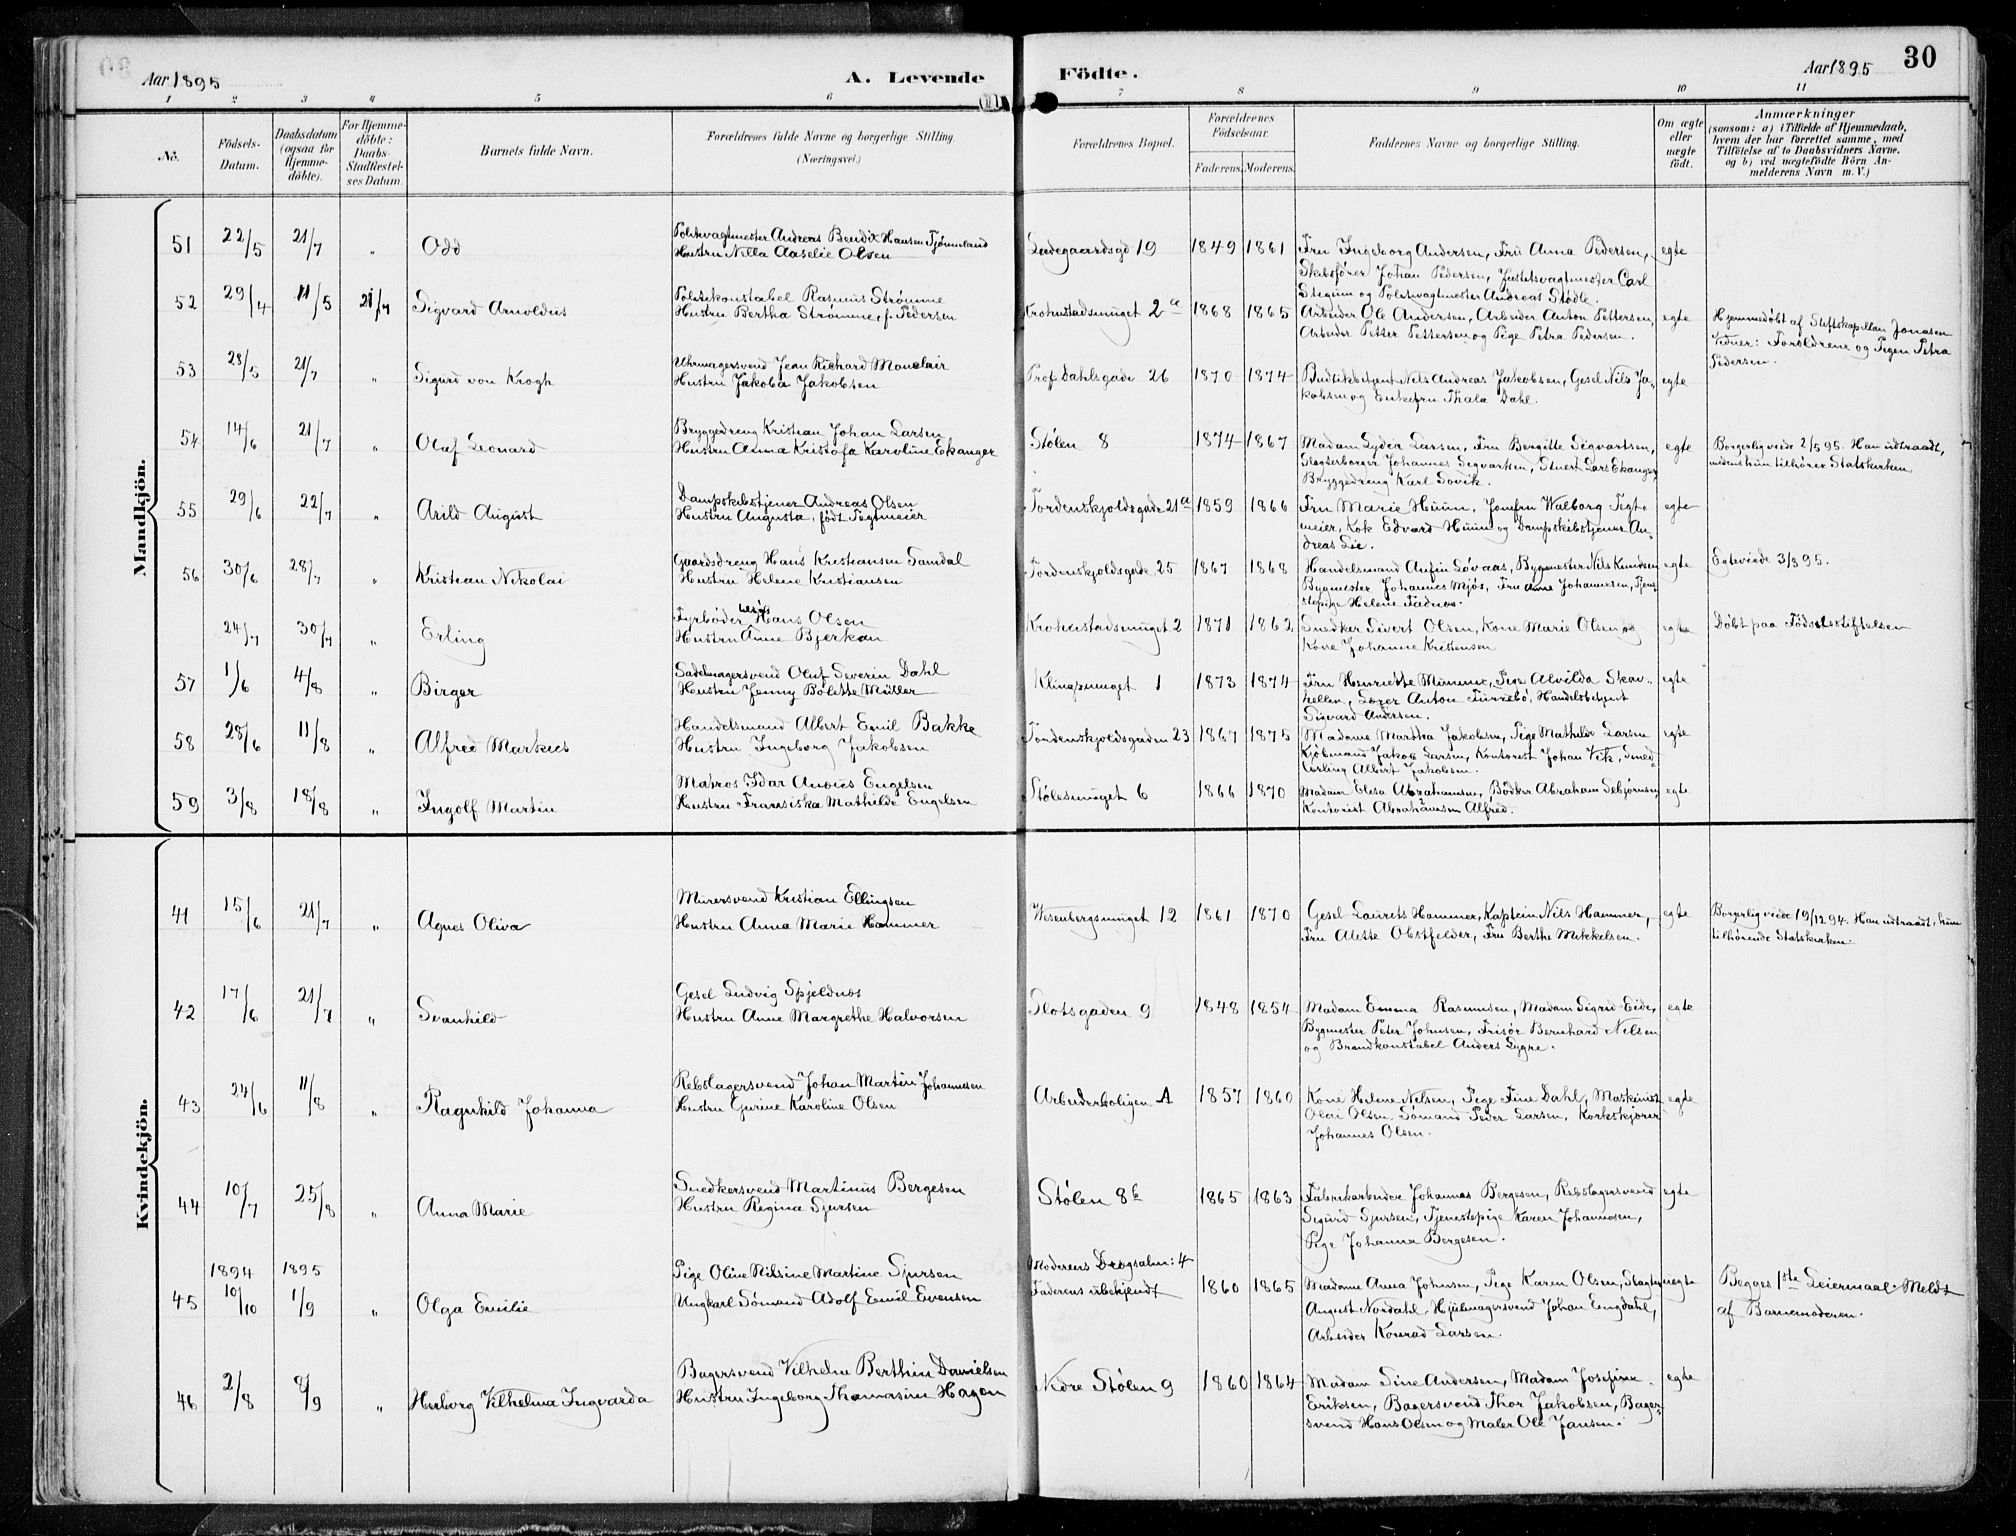 Aar 1895
A. Levende Födte.
Aar 1895
30
1 2 3 4 5 6 7 8 9 10 11
No.
Födsels-Datum.
Daabsdatum (ogsaa for Hjemmedöbte).
For Hjemmedöbte: Daabs-Stadfæstelses Datum.
Barnets fulde Navn.
Forældrenes fulde Navne og borgerlige Stilling. (Næringsvei.)
Forældrenes Bopæl.
Forældrenes Födselsaar.
Faderens. Moderens.
Faddernes Navne og borgerlige Stilling.
Om ægte eller uægte födt.
Anmærkninger
(sansom: a) i Tilfælde af Hjemmedaab, hvem der har forrettet samme, med Tilföielse af to Daabsvidners Navne, og b) ved uægtefödte Börn Anmelderens Navn m. V.)
Mandkjön.
51 22/5 21/7 " Odd
Politivagtmester Andreas Bendix Hansen Tjømeland
Hustru Nella Aaselie Olsen
Ladegaardsgd 19 1849 1861
Fru Ingeborg Andersen, Fru Anna Pedersen,
Skibsfører Johan Pedersen, Justitsvagtmester Carl
Stegum og Politivagtmester Andreas Stødle.
egte
52 29/4 11/5 21/7 Sigvard Arnoldus
Politikonstabel Rasmus Strømme
Hustru Bertha Strømme, f. Pedersen
Krohnstadsmuget 2a 1868 1865
Arbeider Ole Andersen, Arbeider Anton Pettersen,
Arbeider Petter Pettersen og Pige Petra Pedersen.
egte
Hjemmedøbt af Stiftskapellan Jonasen
Vidner: Forældrene og Pigen Petra
Pedersen.
53 28/5 21/7 " Sigurd von Krogh
Uhrmagersvend Jean Richard Monclair
Hustru Jakoba Jakobsen
Prof. Dahlsgade 26 1870 1874
Budtikbetjent Nils Andreas Jakobsen, Gesel Nils Ja-
kobsen og Enkefru Thala Dahl.
egte
54 14/6 21/7 " Olaf Leonard
Bryggedreng Kristian Johan Larsen
Hustru Anna Kristofa Karoline Ekanger
Stølen 8 1874 1867
Madam Lyder Larsen, Fru Bergitte Sigvartsen,
Slagterborger Johannes Sigvartsen, Stuert Lars Ekanger,
Bryggedreng Karl Sovik.
egte
Borgerlig viede 2/5 95. Han udtraadt,
medens hun tilhører Statskirken
55 29/6 22/7 " Arild August
Dampskibstjener Andreas Olsen
Hustru Augusta, født Tegtmeier
Tordenskjoldsgade 21a 1859 1866
Fru Marie Huun, Jomfru Walborg Tegt-
meier, Kok Edvard Huun og Dampskibstjener An-
dreas Lie.
egte
56 30/6 28/7 " Kristian Nikolai
Gaardsdreng Hans Kristiansen Samdal
Hustru Helene Kristiansen
Tordenskjoldsgade 25 1867 1868
Handelsmand Anfin Løvaas, Bygmester Nils Knudsen
Bygmester Johannes Mjøs, Fru Anne Johannesen, Tjene-
stepige Helene Fadnes.
egte
Egteviede 3/3 95.
24/7 30/7 " Erling
Fyrbøder Hans Olsen
Hustru Anne Bjerkan
Krohnstadsmuget 2 1871 1862
Snedker Sivert Olsen, Kone Marie Olsen og
Kone Johanne Kristensen
egte
Døbt paa Fødselsstiftelsen
57 1/6 4/8 " Birger
Sadelmagersvend Oluf Severin Dahl
Hustru Jenny Bolette Müller
Klingpmuget 1 1873 1874
Fru Henriette Mumme, Pige Alvilda Skav-
hellen, Lærer Anton Furrebö, Handelsbetjent
Sigvard Andersen.
egte
58 28/6 11/8 " Alfred Markus
Handelsmand Albert Emil Bakke
Hustru Ingeborg Jakobsen
Tordenskjoldsgaden 23 1867 1875
Madame Martha Jakobsen, Pige Mathilde Larsen
Kjøbmand Jakob Larsen, Kontorist Johan Vik, Smed-
lærling Albert Jakobsen.
egte
59 3/8 18/8 " Ingolf Martin
Matros Idar Engelsen
Hustru Fransiska Mathilde Engelsen
Stølesmuget 6 1866 1870
Madam Elesa Abrahamsen, Bødker Abraham Sebjørnsen,
Kontorist Abrahamsen Alfred.
egte
Kvindekjön.
41 15/6 21/7 " Agnes Oliva
Murersvend Kristian Ellingsen
Hustru Anna Marie Hammer
Wesenbergsmuget 12 1861 1870
Gesel Laurits Hammer, Kaptein Nils Hammer,
Fru Alette Obstfelder, Fru Berthe Mikkelsen.
egte
Borgerlig viede 19/12 94. Han udtraadt, hun
tilhørende Statskirken.
42 17/6 21/7 " Svanhild
Gesel Ludvig Spjeldnæs
Hustru Anne Margrethe Halvorsen
Slotsgaden 9 1848 1854
Madam Emma Rasmusen, Madam Sigrid Eide,
Bygmester Peter Johnsen, Frisør Bernhard Nilsen
og Brandkonstabel Anders Lygre.
egte
43 24/6 11/8 " Ragnhild Johanna
Rebslagersvend Johan Martin Johannesen
Hustru Gurine Karoline Olsen
Arbeiderboligen A 1857 1860
Kone Helene Nilsen, Pige Fine Dahl, Maskinist
Olai Olsen, Sømand Peder Larsen, Korkskjærer
Johannes Olsen.
egte
44 10/7 25/8 " Anna Marie
Snedkersvend Martinus Bergesen
Hustru Regina Sjursen
Stølen 8b 1865 1863
Fabrikarbeider Johannas Bergesen, Rebslagersvend
Sigurd Sjursen, Tjenestepige Karen Johannesen,
Pige Johanna Bergesen.
egte
1894 1895
45 10/10 1/9 " Olga Emilie
Pige Oline Nilsine Martine Sjursen
Ungkarl Sømand Adolf Emil Evensen
Moderens Dregsalm: 4
Faderens ubekjendt
1860 1865
Madame Anna Johnsen, Pige Karen Olsen, Slagter
August Nordahl, Hjulmagersvend Johan Engdahl,
Arbeider Konrad Larsen.
uegte
Begges 1ste Leiermaal. Meldt
af Barnemoderen.
46 2/8 8/9 " Herborg Vilhelma Ingvarda
Bagersvend Vilhelm Berthin Danielsen
Hustru Ingeborg Thomasine Hagen
Nedre Stølen 9 1860 1864
Madam Sine Andersen, Madam Josefine
Eriksen, Bagersvend Thor Jakobsen, Bager-
svend Hans Olsen og Maler Ole Jansen.
egte